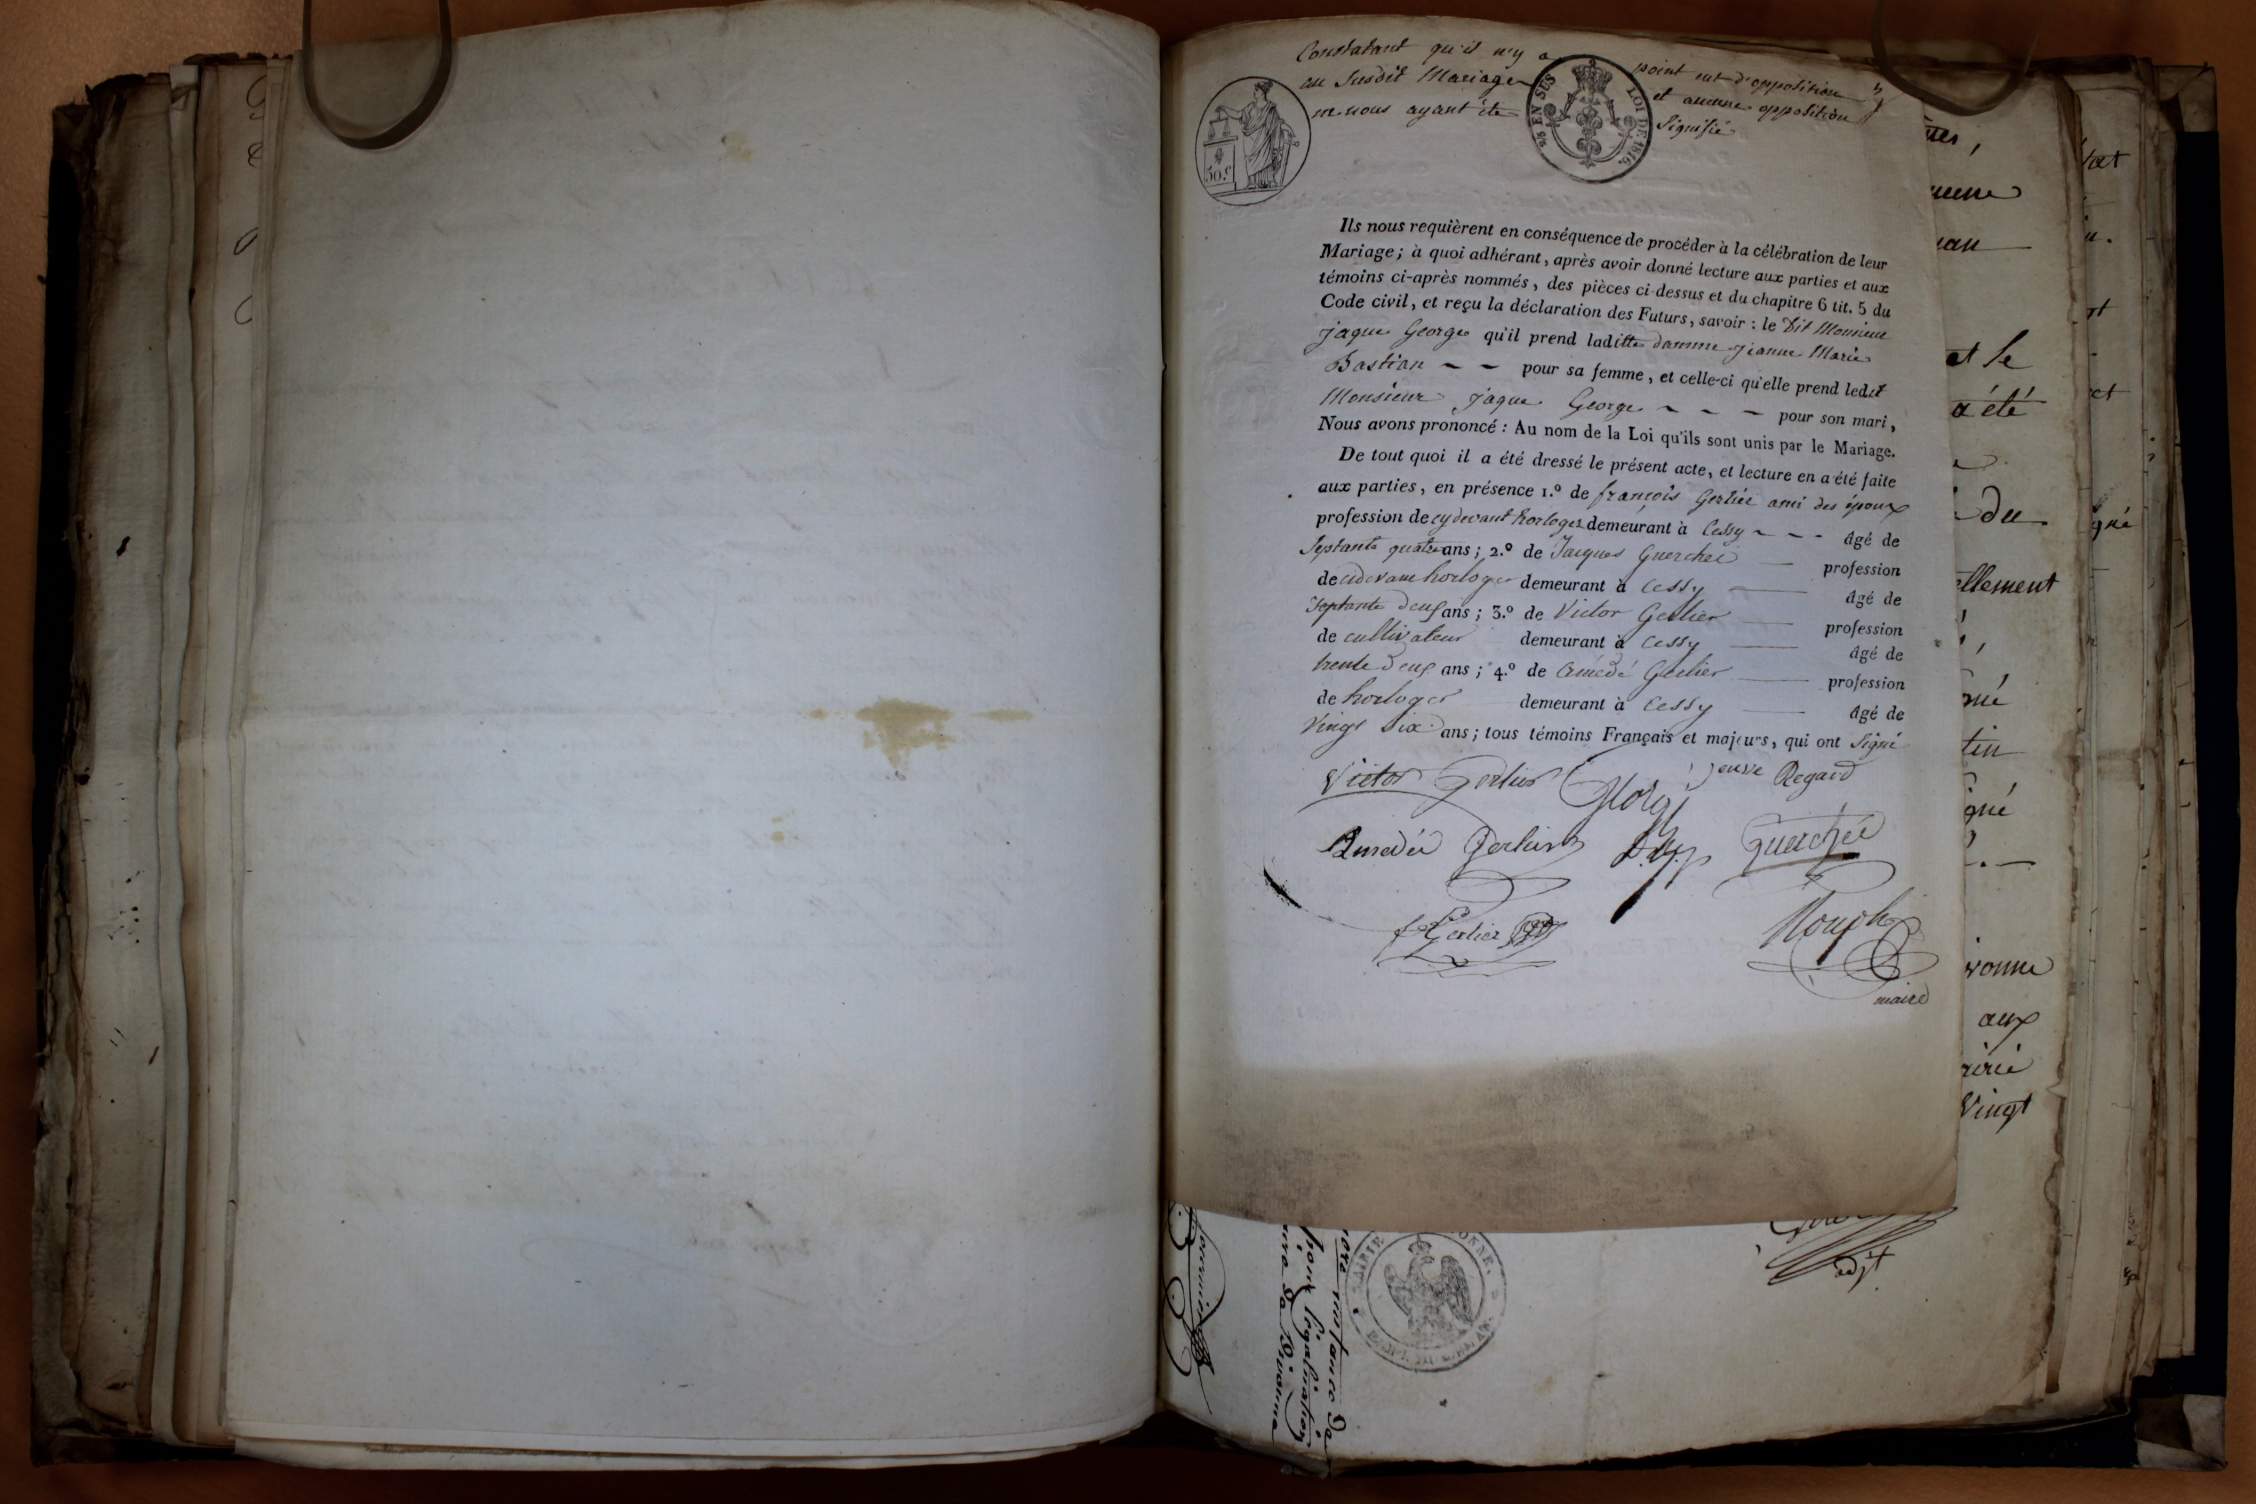 Constatant qu'il n'y a point eut d'opposition
au susdit Mariage et aucune opposition
ne nous ayant ète signifié
50 c.
EN SUS LOI DE 1816.
Ils nous requièrent en conséquence de procéder à la célébration de leur
Mariage ; à quoi adhérant, après avoir donné lecture aux parties et aux
témoins ci-après nommés, des pièces ci-dessus et du chapitre 6 tit. 5 du
Code civil, et reçu la déclaration des Futurs, savoir : le dit Monsieur
jaque George qu'il prend laditte damme jeanne Marie
Bastian ~ ~ pour sa femme, et celle-ci qu'elle prend ledit
Monsieur jaque George ~ ~ ~ pour son mari,
Nous avons prononcé : Au nom de la Loi qu'ils sont unis par le Mariage.
De tout quoi il a été dressé le présent acte, et lecture en a été faite
aux parties, en présence 1.º de françois Gerlier ami des époux
profession de cydevant horloger demeurant à Cessy ~ ~ ~ âgé de
septante quatre ans ; 2.º de Jacques Guerchei — profession
de cidevant horloger demeurant à Cessy — âgé de
septante deux ans ; 3.º de Victor Gerlier — profession
de cultivateur demeurant à Cessy — âgé de
trente deux ans ; 4.º de amédé Gerlier — profession
de horloger demeurant à Cessy — âgé de
vingt six ans ; tous témoins Français et majeurs, qui ont signé
Victor Gerlier Gorgi Regard
Amedée Gerlier Guerchei
f Gerlier
maire
et le
a été
du
ellement
tin
gné
aux
Vingt
adjt
MAIRIE
pour légalisation